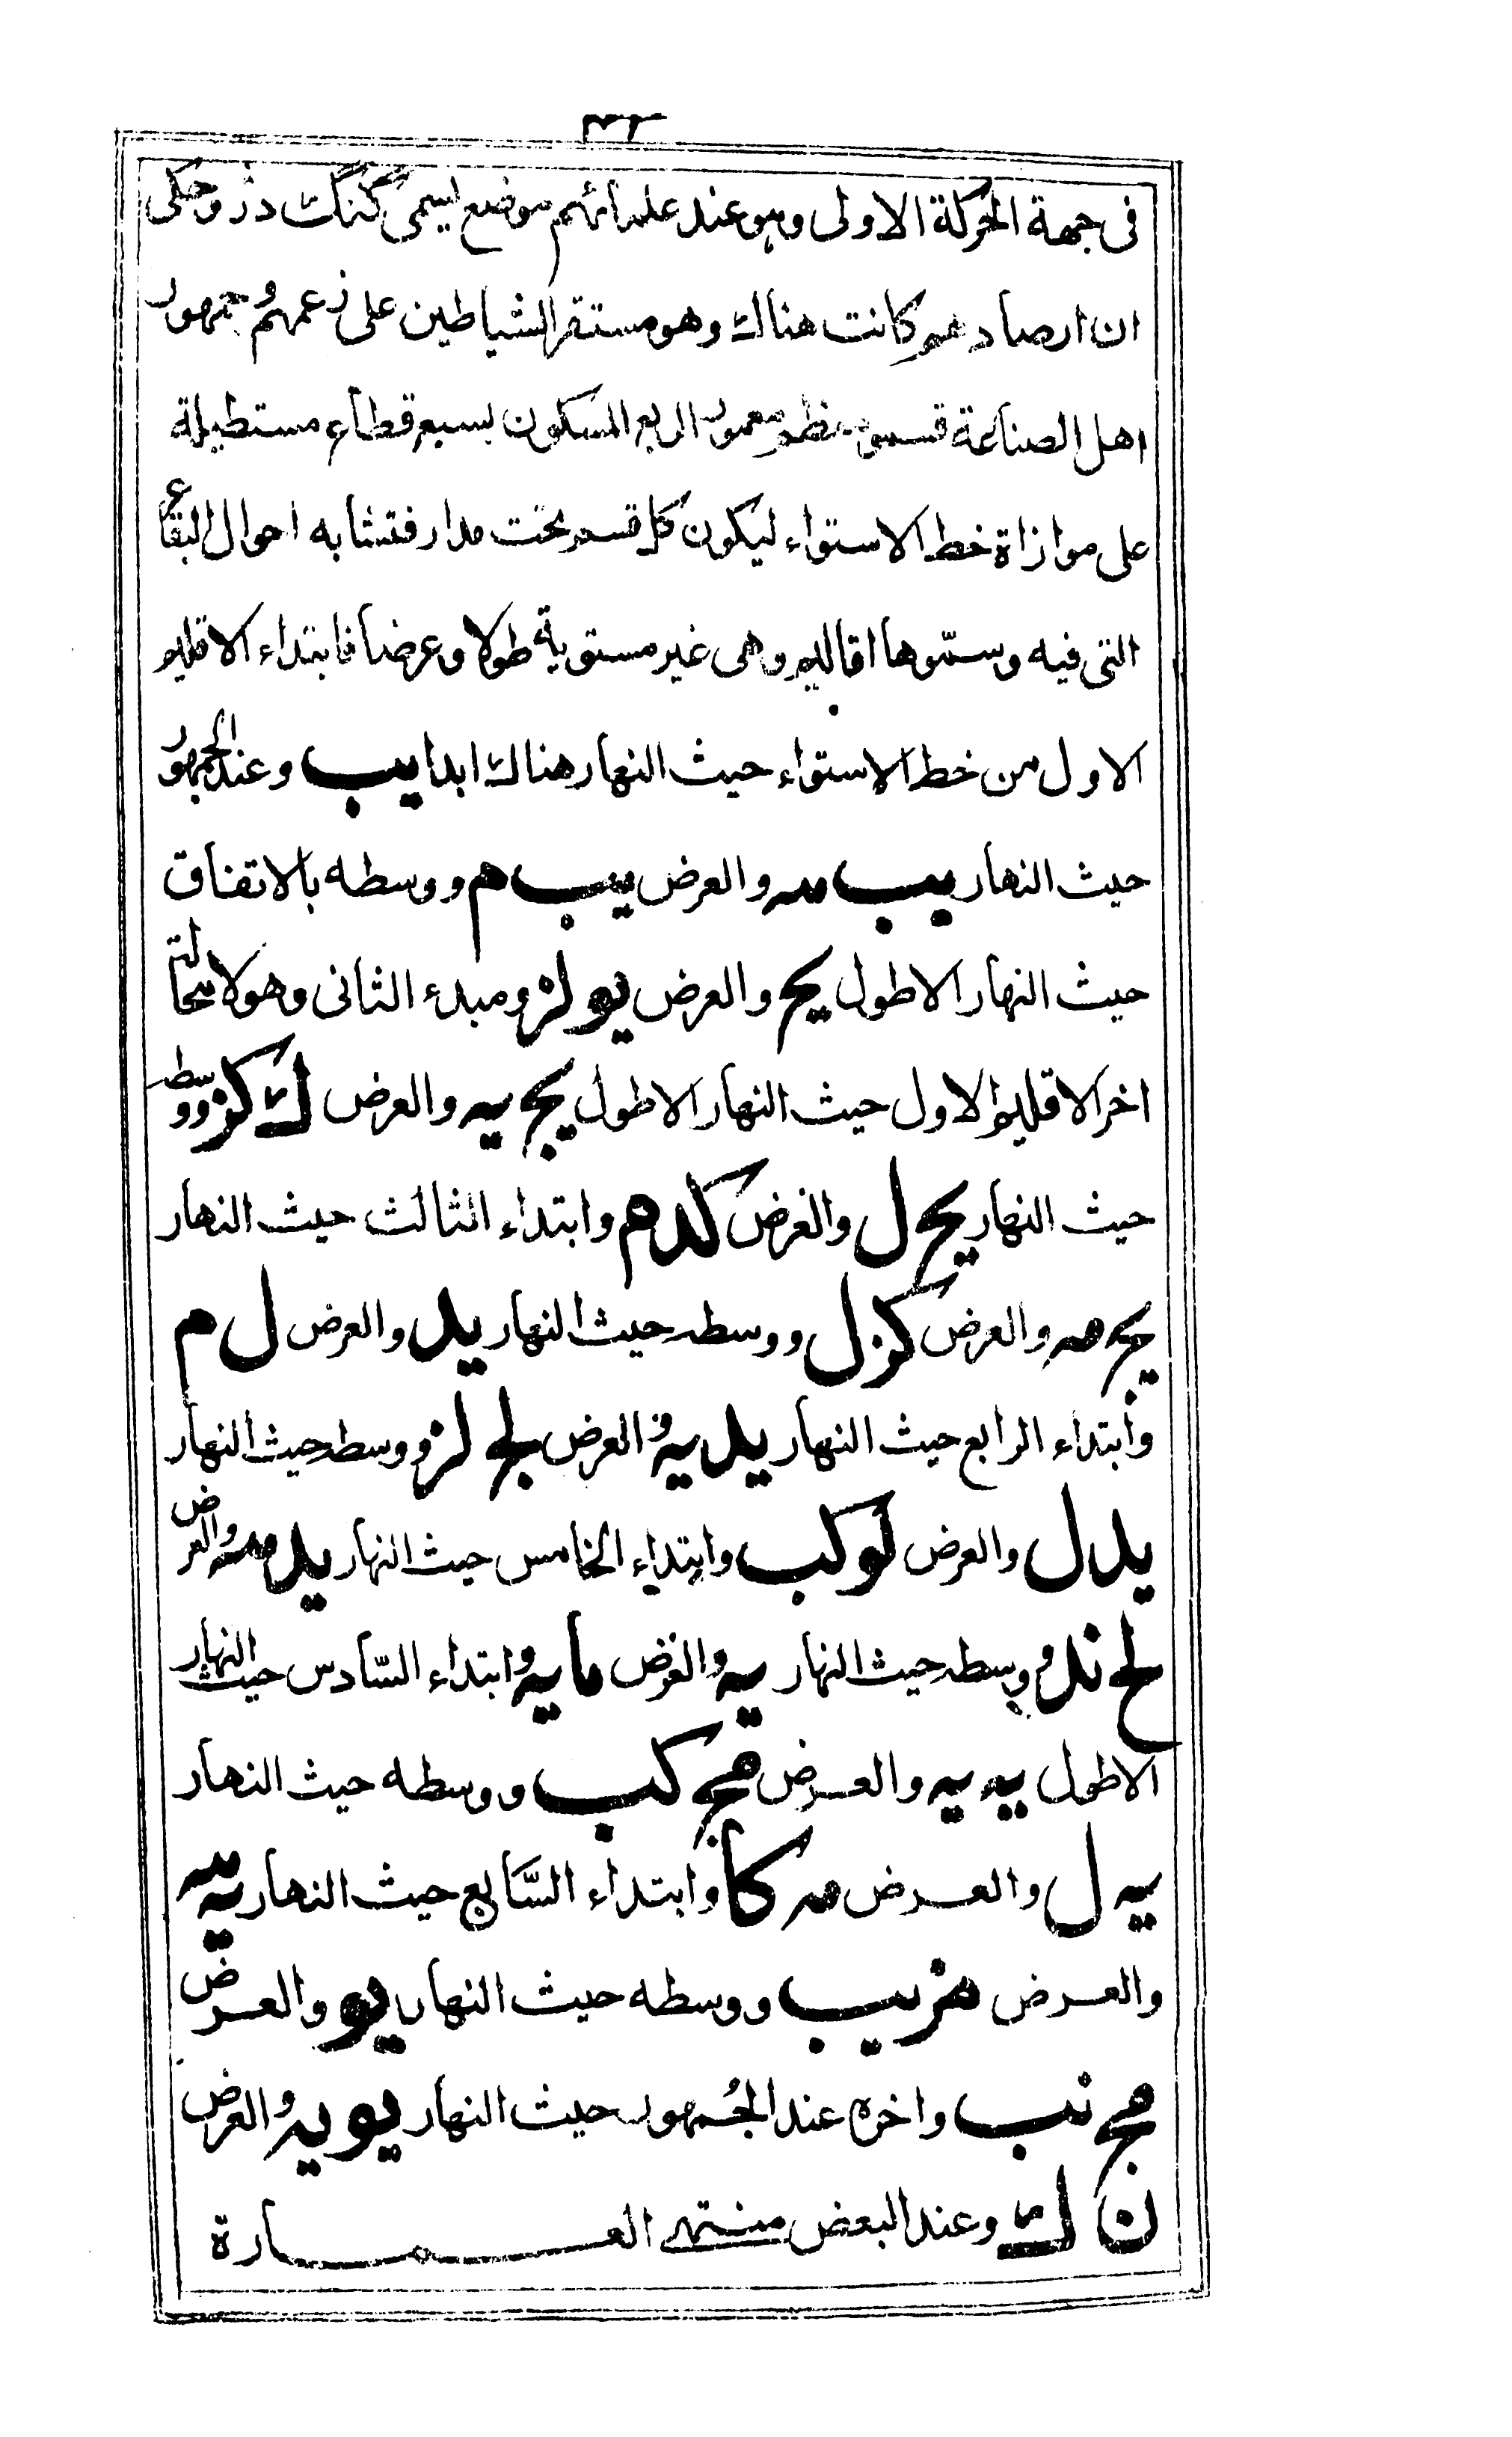 ٣٢
فى جهة الحركة الاولى وهو عند علمائهم موضع يسمى گنگ دز وحكى
ان ارصادهم كانت هناك وهو مستقر الشياطين على زعمهم وجمهور
اهل الصناعة قسموا معظم معمور الربع المسكون بسبع قطاع مستطيلة
على موازاة خط الاستواء ليكون كل قسم تحت مدار فتشابه احوال البقاع
التى فيه وسمّوها اقاليم وهى غير مستوية طولا وعرضا فابتداء الاقليم
الاول من خط الاستواء حيث النهار هناك ابدا يب وعند الجمهور
حيث النهار يب مه والعرض يب م ووسطه بالاتفاق
حيث النهار الاطول يج والعرض يو لز ومبدء الثانى وهو لا محالة
اخر الاقليم الاول حيث النهار الاطول يج يه والعرض ك كز ووسطه
حيث النهار يج ل والعرض كد م وابتداء الثالث حيث النهار
يج مه والعرض كز ل ووسطه حيث النهار يد والعرض ل م
وابتداء الرابع حيث النهار يد يه والعرض لج لز ووسطه حيث النهار
يد ل والعرض لو كب وابتداء الخامس حيث النهار يد مه والعرض
لح ند ووسطه حيث النهار يه والعرض ما يه وابتداء السّادس حيث النهار
الاطول يه يه والعرض مج كب ووسطه حيث النهار
يه ل والعرض مه كا وابتداء السَّابع حيث النهار يه مه
والعرض مز يب ووسطه حيث النهار يو والعرض
مح نب واخره عند الجُمهور حيث النهار يو يه والعرض
ن ك وعند البعض منتهى العمارة